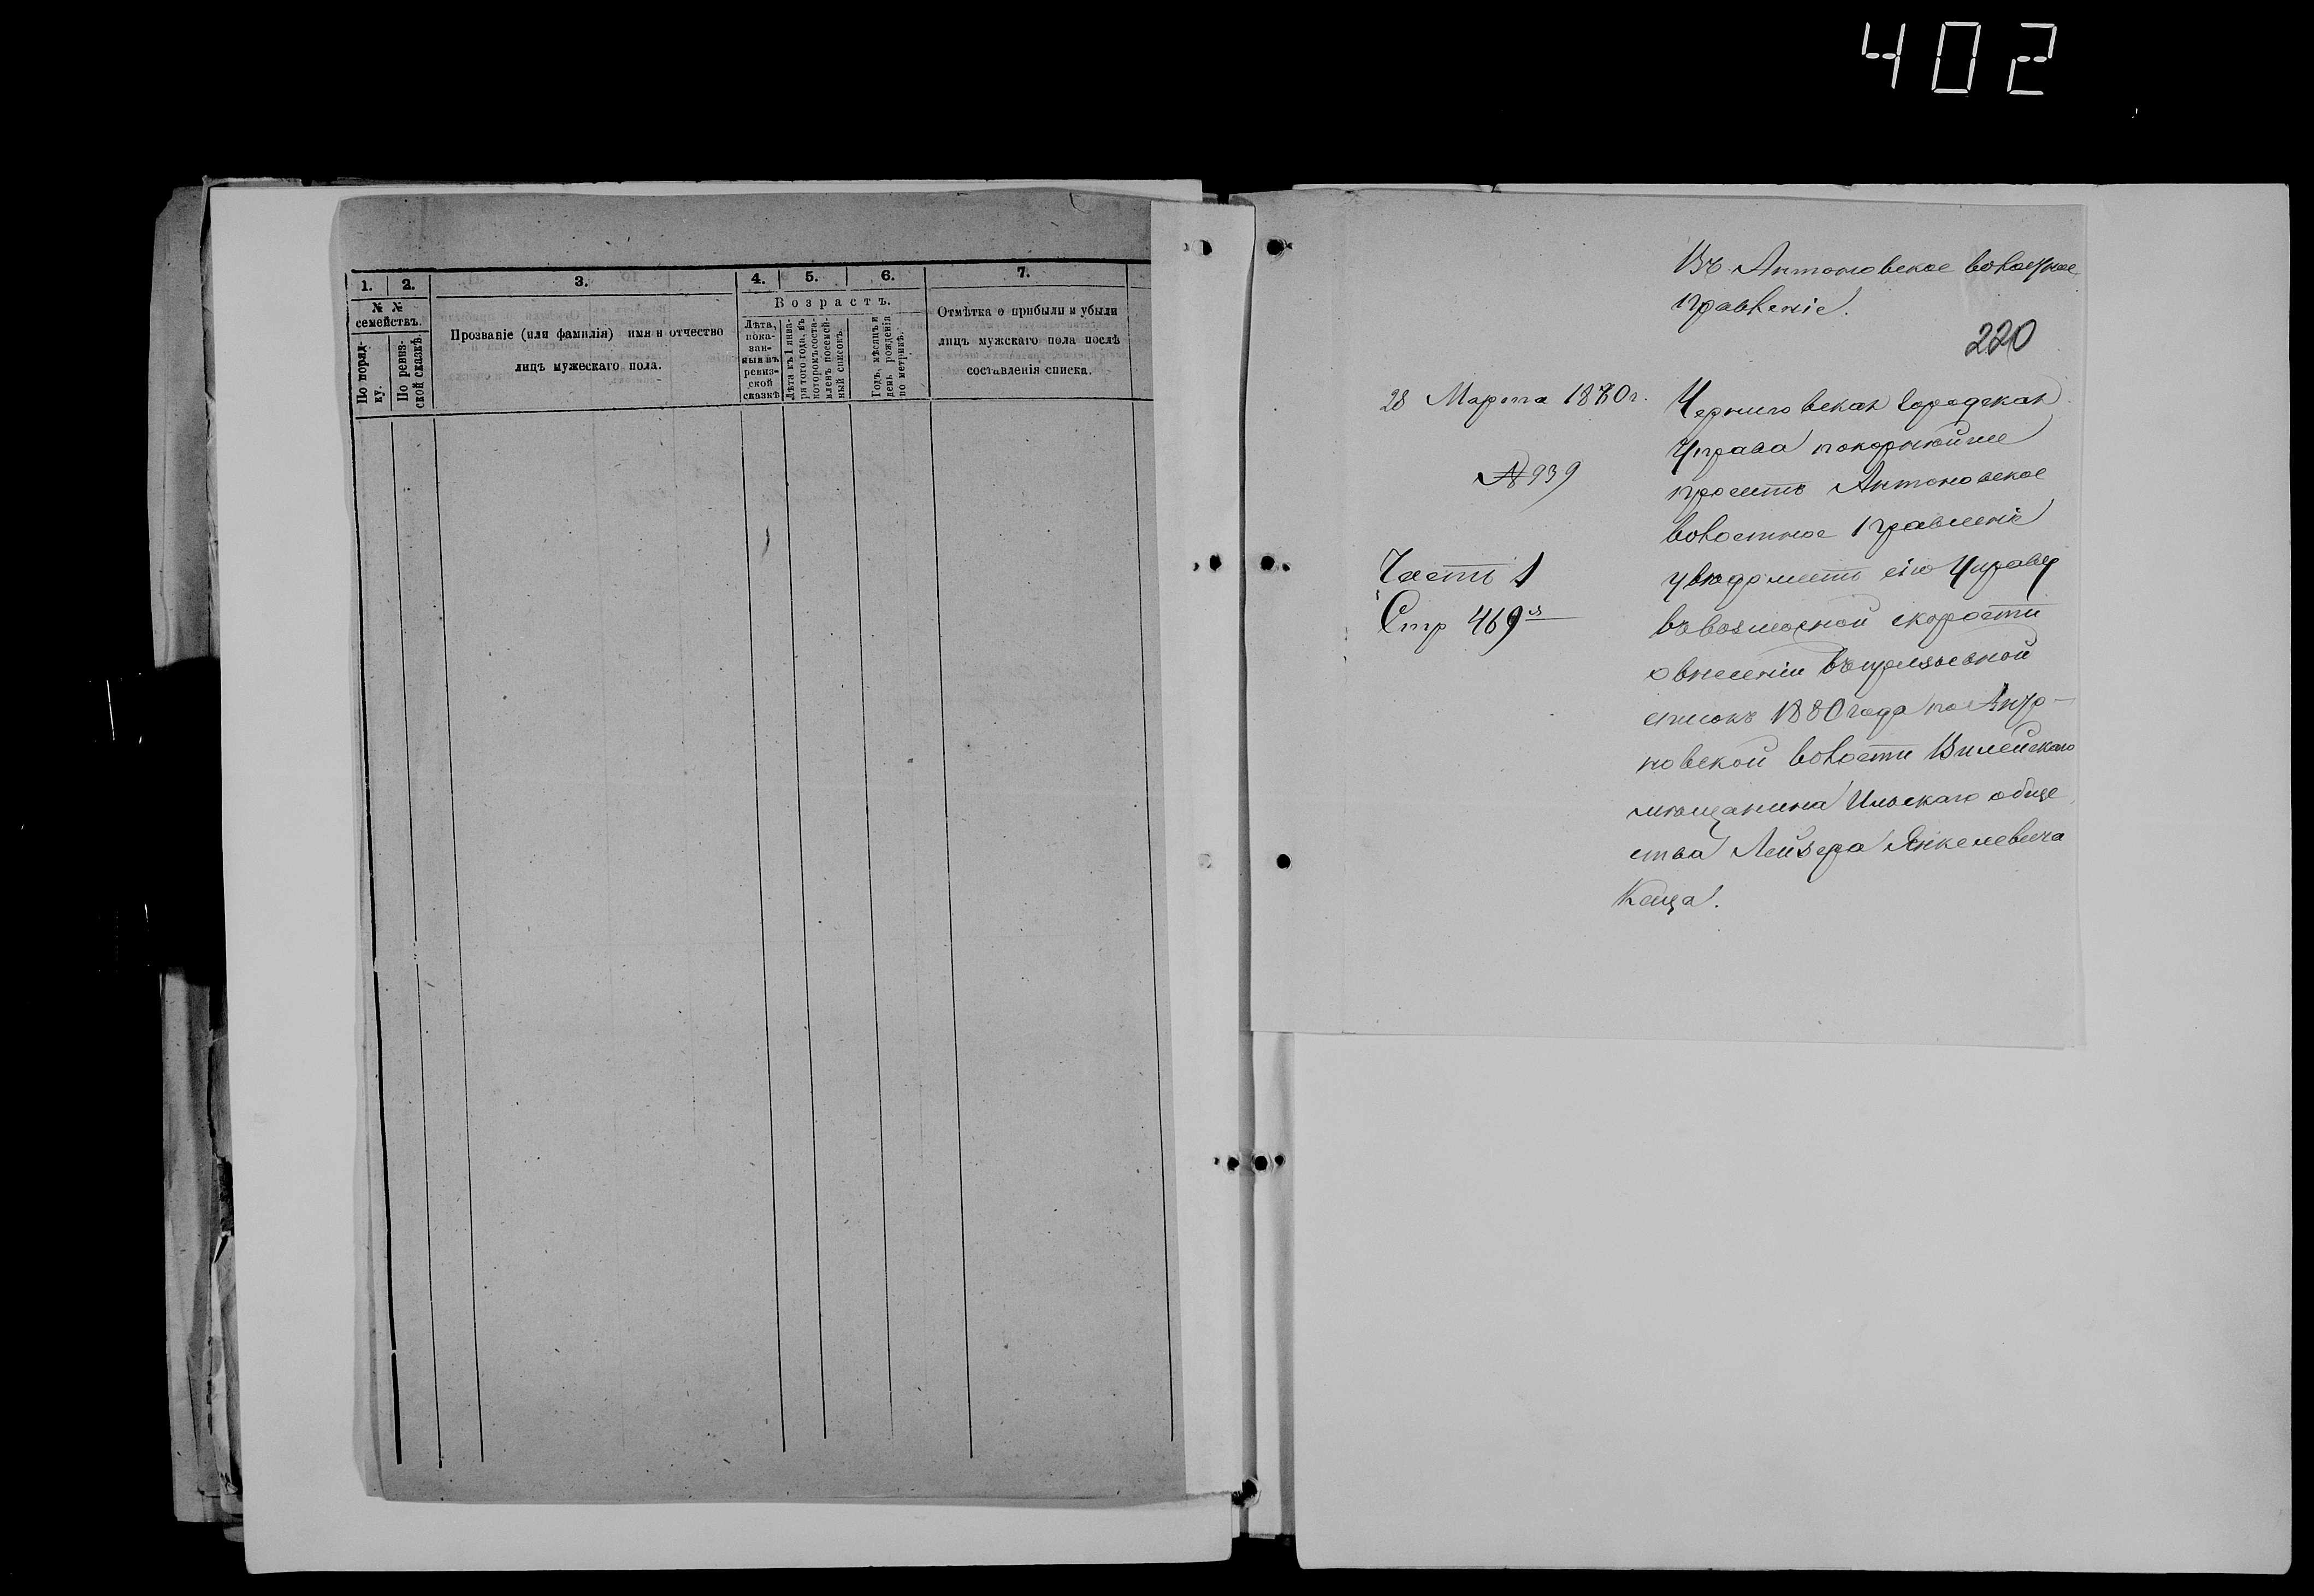 402
1. 2. 3. 4. 5. 6. 7.
№ №
семействъ.
По поряд-
ку.
По ревиз-
ской сказкѣ.
Прозваніе (или фамилія) имя и отчество
лицъ мужескаго пола.
Возрастъ.
Лѣта,
пока-
зан-
ныя въ
ревиз-
ской
сказкѣ
Лѣта къ 1 янва-
ря того года, въ
которомъ соста-
вленъ посемей-
ный списокъ.
Годъ, мѣсяцъ и
день рожденія
по метрикѣ.
Отмѣтка о прибыли и убыли
лицъ мужскаго пола послѣ
составленія списка.
Въ Антоновское волостное
правленіе.
220
28 Марта 1880 г.
№ 939
Часть 1
Стр 469
Черниговская городская
Управа покорнѣйше
проситъ Антоновское
волостное правленіе
увѣдомить сію Управу
въ возможной скорости
о внесеніи въ призывной
списокъ 1880 года по Анто-
новской волости Вилейскаго
мѣщанина Ильскаго обще
ства Лейзера Янкелевича
Каца.